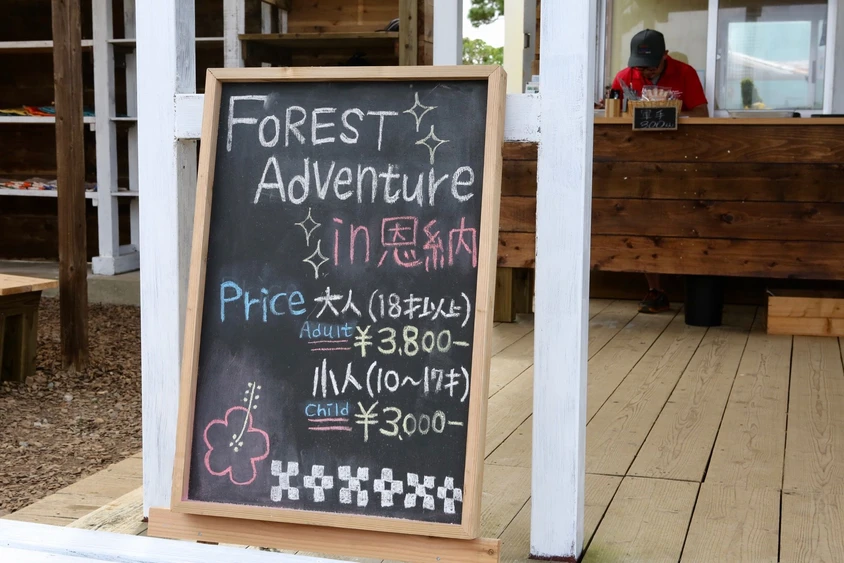 FOREST
Adventure
in 恩納
Price 大人 (18才以上)
Adult ¥3,800-
小人 (10～17才)
Child ¥3,000-